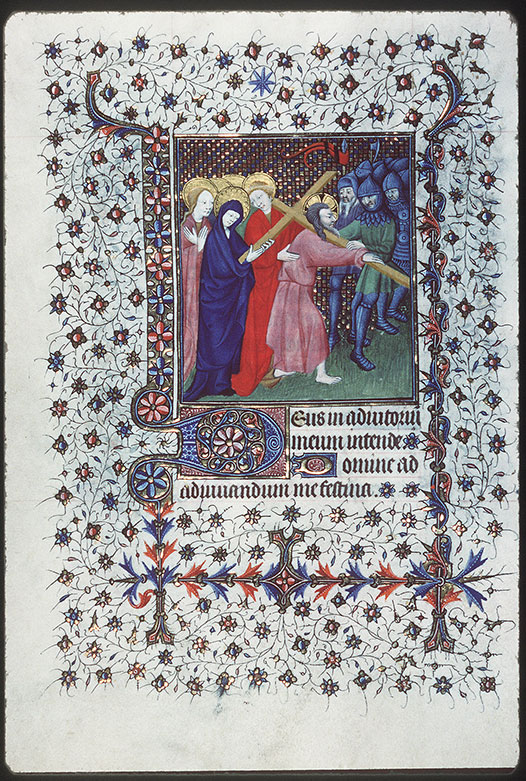 DEus in adiutoriũ
meum intende
Domine ad
adiuuandum me festina.